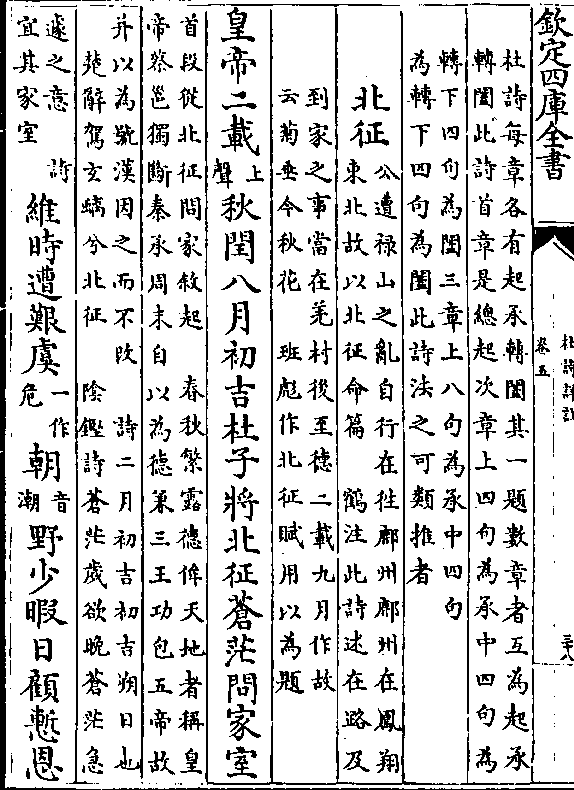 欽定四庫全書
杜詩詳註
卷五
三十八
杜詩每章各有起承轉闔其一題數章者互為起承
轉闔此詩首章是總起次章上四句為承中四句為
轉下四句為闔三章上八句為承中四句
為轉下四句為闔此詩法之可類推者
北征
公遭禄山之亂自行在徃鄜州鄜州在鳳翔
東北故以北征命篇 鶴注此詩述在路及
到家之事當在羌村後至德二載九月作故
云菊垂今秋花 班彪作北征賦用以為題
皇帝二載上聲秋閏八月初吉杜子將北征蒼茫問家室
首段從北征問家敘起 春秋繁露德侔天地者稱皇
帝蔡邕獨斷秦承周末自以為德兼三王功包五帝故
并以為號漢因之而不改 詩二月初吉初吉朔日也
楚辭駕玄螭兮北征 陰鏗詩蒼茫歲欲晚蒼茫急
遽之意 詩
宜其家室
維時遭艱虞一作危朝音潮野少暇日顧慙恩